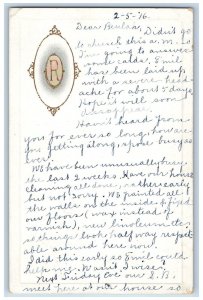 2-5-76.
Dear Beulah; Didn't go
to church this a.m. so
I'm going to answer
some cards. Emil
has been laid up
with a severe head-
ache for about 5 days.
Hope it will soon
disappear.
R
Haven't heard from
you for ever so long, how are
you getting along, spose busy as
ever.
We have been unusually busy
the last 2 weeks. Have our house
cleaning all done, rather early
but not sorry. We painted all
the walls on the inside & fixed
our floors (wax instead of
varnish), new linoleum etc
so things look half way respect-
able around here now.
I did this early so Emil could
help me. Wasn't I wise.
Next Sunday eve our L.B.
meets here at our house so